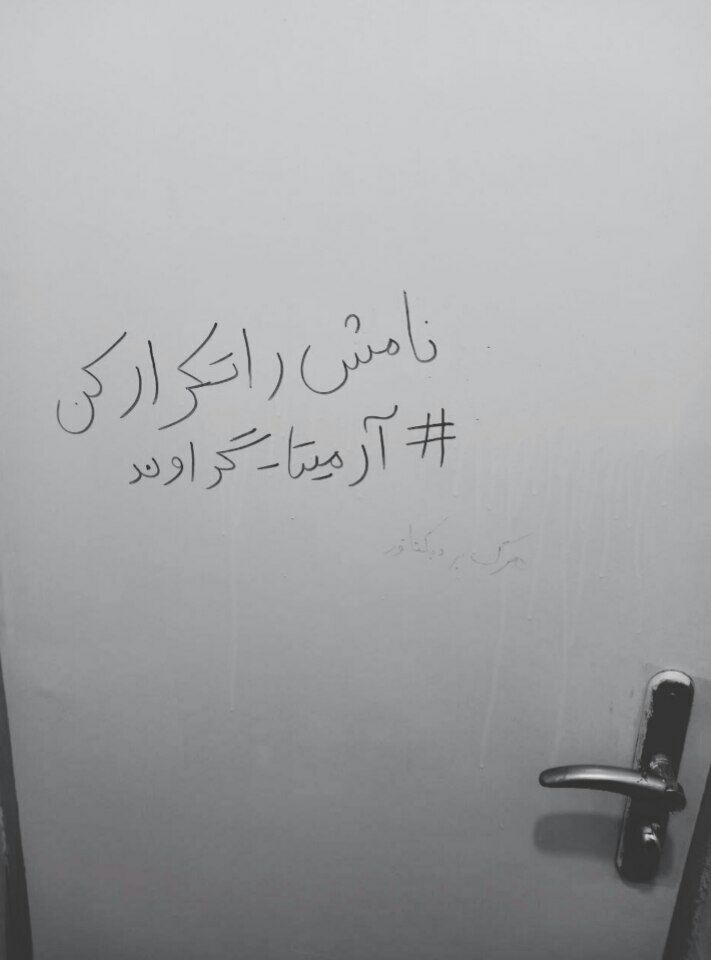 نامش را تکرار کن
#آرمیتا_گراوند
مرگ بر دیکتاتور